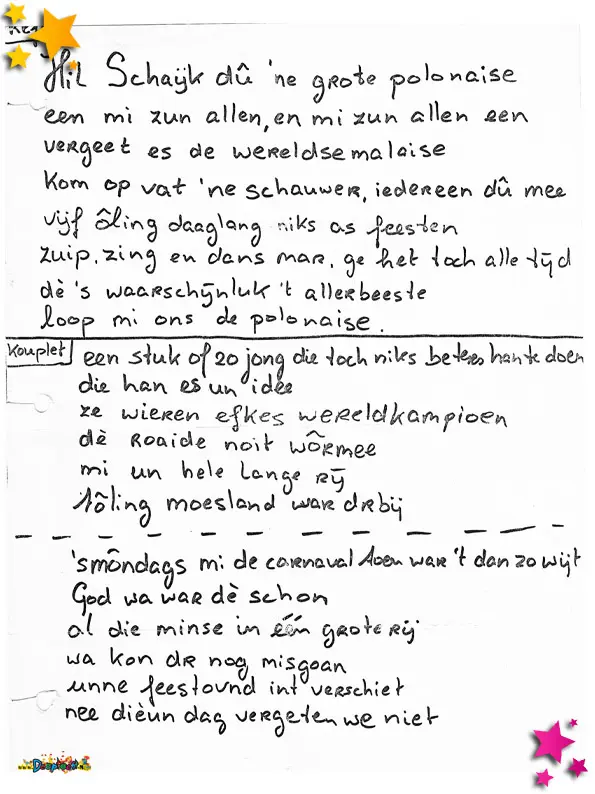 Hil Schaijk dû 'ne grote polonaise
een mi zun allen, en mi zun allen een
vergeet es de wereldse malaise
kom op vat 'ne schauwer, iedereen dû mee
vijf ôling daaglang niks as feesten
zuip, zing en dans mar, ge het toch alle tijd
dè 's waarschijnluk 't allerbeeste
loop mi ons de polonaise.
Kouplet
een stuk of 20 jong die toch niks beters hante doen
die han es un idee
ze wieren efkes wereldkampioen
dè Roaide noit wôrmee
mi un hele lange rij
hôling moesland war drbij
'smôndags mi de carnaval toen war 't dan zo wijt
God wa war dè schon
al die minse in één grote rij
wa kon dr nog misgoan
unne feestovnd int verschiet
nee dièun dag vergeten we niet